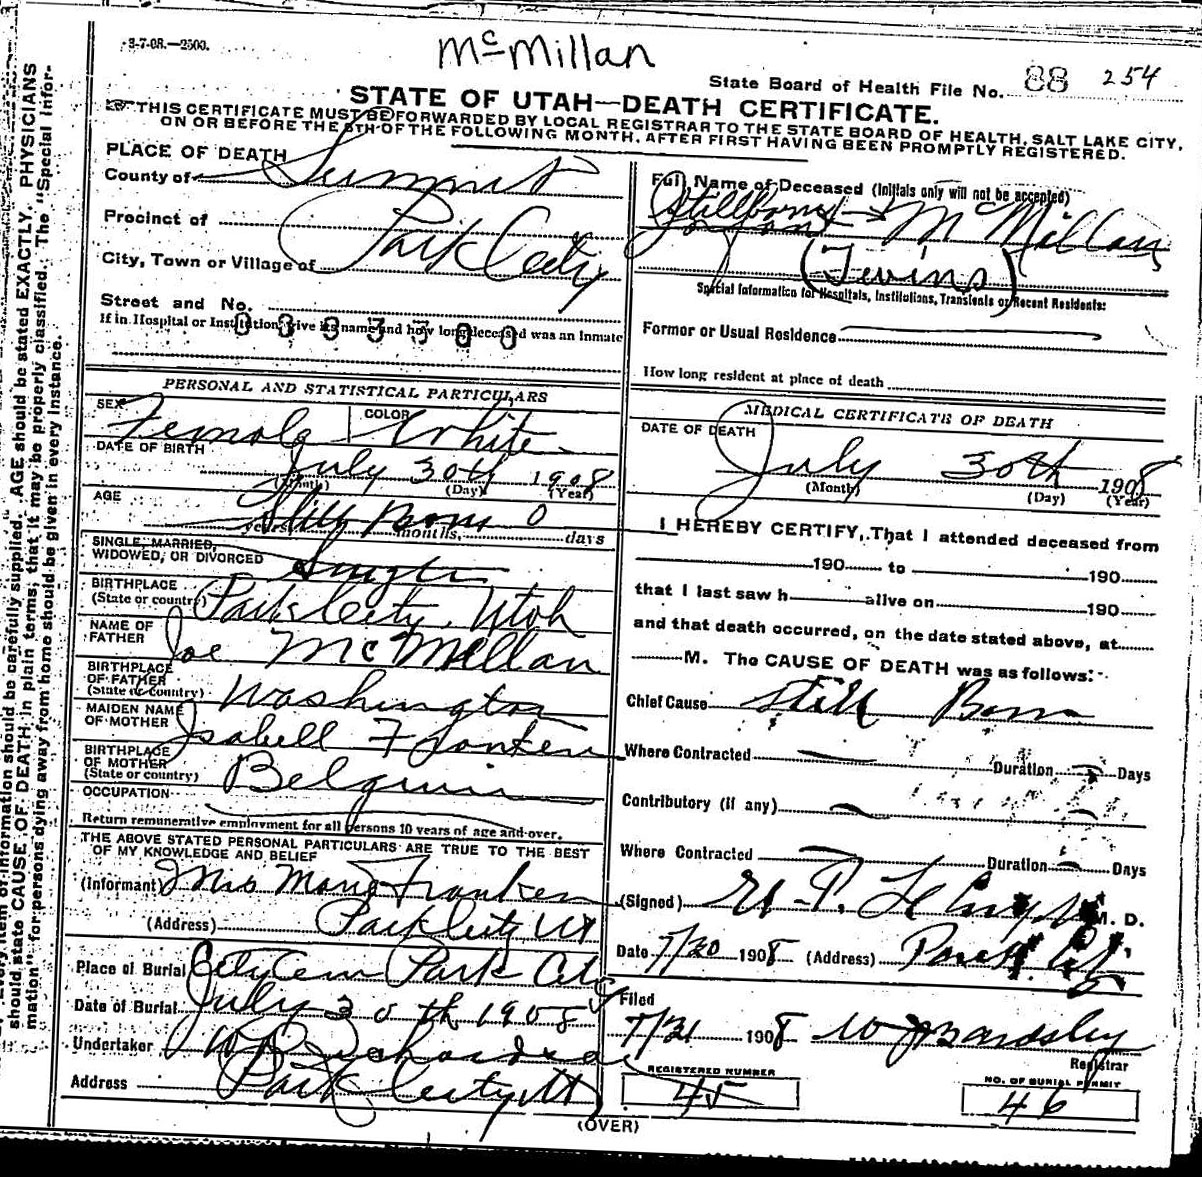 3-7-08.—2500.
McMillan
State Board of Health File No. 88 254
STATE OF UTAH—DEATH CERTIFICATE.
THIS CERTIFICATE MUST BE FORWARDED BY LOCAL REGISTRAR TO THE STATE BOARD OF HEALTH, SALT LAKE CITY,
ON OR BEFORE THE 5TH OF THE FOLLOWING MONTH, AFTER FIRST HAVING BEEN PROMPTLY REGISTERED.
PLACE OF DEATH
County of Summit
Precinct of
City, Town or Village of Park City
Street and No.
If in Hospital or Institution, give its name and how long deceased was an Inmate
Full Name of Deceased (Initials only will not be accepted)
Stillborn McMillan
(Twins)
Special Information for Hospitals, Institutions, Transients or Recent Residents:
Former or Usual Residence
How long resident at place of death
PERSONAL AND STATISTICAL PARTICULARS
SEX Female COLOR White
DATE OF BIRTH
July 30th 1908
(Month) (Day) (Year)
AGE
Still Born 0
years, months, days
SINGLE, MARRIED,
WIDOWED, OR DIVORCED Single
BIRTHPLACE
(State or country) Park City, Utah
NAME OF
FATHER Joe McMillan
BIRTHPLACE
OF FATHER
(State or country) Washington
MAIDEN NAME
OF MOTHER Isabell Franken
BIRTHPLACE
OF MOTHER
(State or country) Belgium
OCCUPATION
Return remunerative employment for all persons 10 years of age and over.
THE ABOVE STATED PERSONAL PARTICULARS ARE TRUE TO THE BEST
OF MY KNOWLEDGE AND BELIEF
(Informant Mrs Mary Franken
(Address) Park City Ut
Place of Burial City Cem Park City
Date of Burial July 30th 1908
Undertaker W Richardson
Address Park City Ut
MEDICAL CERTIFICATE OF DEATH
DATE OF DEATH
July 30th 1908
(Month) (Day) (Year)
I HEREBY CERTIFY, That I attended deceased from
190 to 190
that I last saw h alive on 190
and that death occurred, on the date stated above, at
M. The CAUSE OF DEATH was as follows:
Chief Cause Still Born
Where Contracted Duration Days
Contributory (if any)
Where Contracted Duration Days
(Signed) M. D.
Date 7/30 1908 (Address) Park City
Filed
7/31 1908 W J Bardsley
Registrar
REGISTERED NUMBER
45
NO. OF BURIAL PERMIT
46
(OVER)
Every item of information should be carefully supplied. AGE should be stated EXACTLY. PHYSICIANS
should state CAUSE OF DEATH in plain terms, that it may be properly classified. The "Special Infor-
mation" for persons dying away from home should be given in every instance.